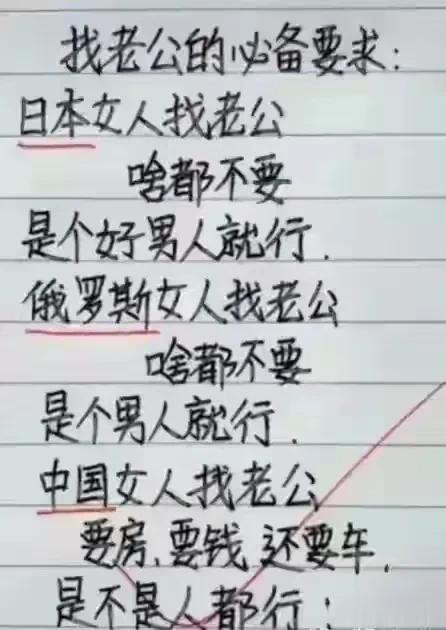 找老公的必备要求:
日本女人找老公
啥都不要
是个好男人就行.
俄罗斯女人找老公
啥都不要
是个男人就行.
中国女人找老公
要房,要钱,还要车,
是不是人都行;